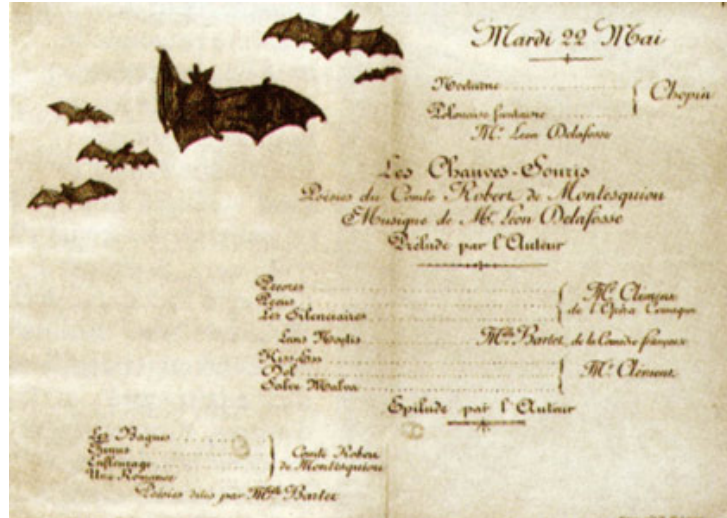 Mardi 22 Mai
Nocturne
Polonaise fantaisie
Chopin
Mr. Léon Delafosse
Les Chauves-Souris
Poésies du Comte Robert de Montesquiou
Musique de Mr. Léon Delafosse
Prélude par l'Auteur
Les Silenciaires
Mr. Clément
de l'Opéra Comique
Mlle Bartet, de la Comédie française
Mr. Clément
Epilude par l'Auteur
Les Bagues
Effleurage
Une Romance
Comte Robert
de Montesquiou
Poésies dites par Mlle Bartet